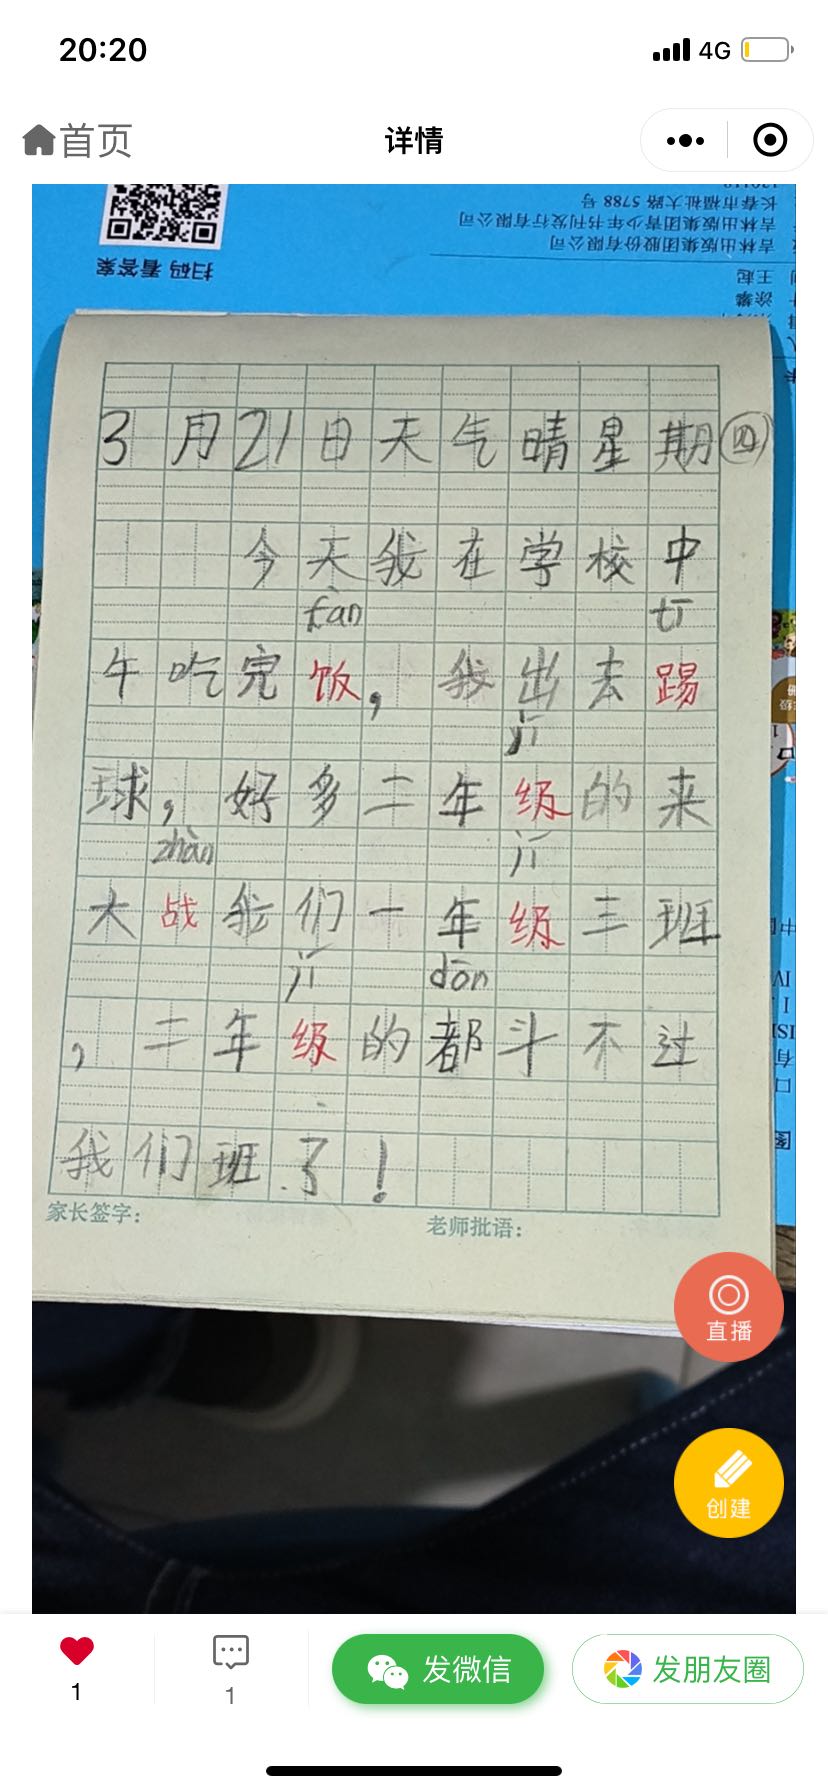 20:20
4G
首页
详情
120118
长春市福祉大路 5788 号
吉林出版集团青少年书刊发行有限公司
吉林出版集团股份有限公司
王起
涂攀
扫码 看答案
3月21日天气晴星期四
今天我在学校中
fàn tī
午吃完饭，我出去踢
jí
球，好多二年级的来
zhàn jí
大战我们一年级三班
jí dōn
，二年级的都斗不过
我们班了！
家长签字：
老师批语：
直播
创建
1
1
发微信
发朋友圈